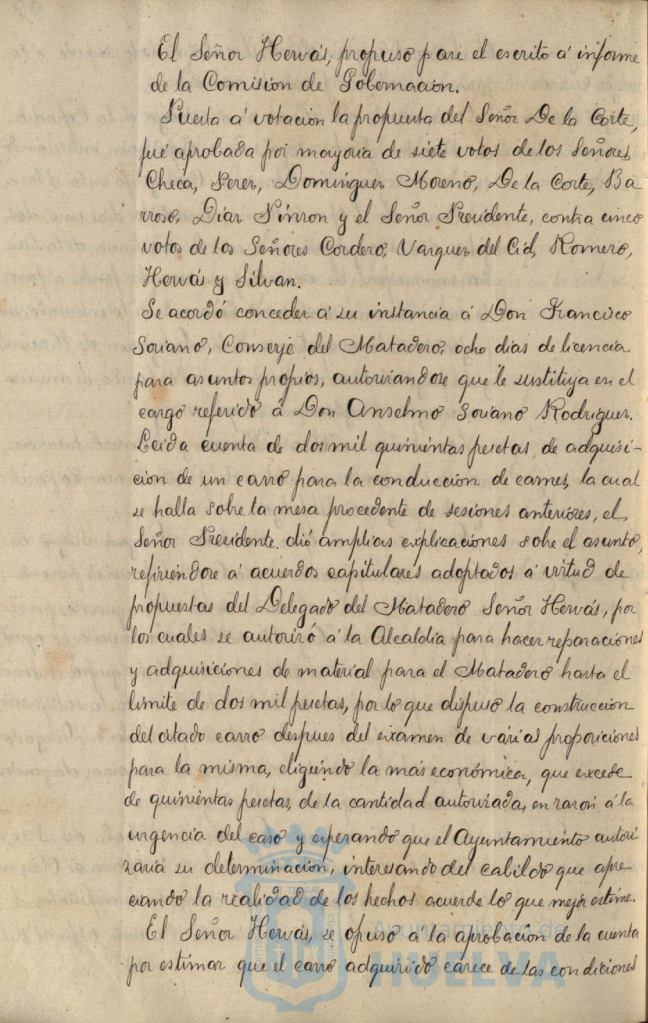 El Señor Hervás, propuso pase el escrito á informe
de la Comisión de Gobernación.
Puesta á votación la propuesta del Señor De la Corte,
fué aprobada por mayoria de siete votos de los Señores
Checa, Perez, Dominguez Moreno, De la Corte, Ba
rroso, Diaz Pinzon y el Señor Presidente, contra cinco
votos de los Señores Cordero, Vazquez del Cid, Romero,
Hervás y Silvan.
Se acordó conceder á su instancia á Don Francisco
Soriano, Conserje del Matadero, ocho dias de licencia
para asuntos propios, autorizandose que le sustituya en el
cargo referido á Don Anselmo Soriano Rodriguez.
Leida cuenta de dos mil quinientas pesetas, de adquisi-
ción de un carro para la conducción de carnes, la cual
se halla sobre la mesa procedente de sesiones anteriores, el
Señor Presidente dió amplias explicaciones sobre el asunto,
refiriendose á acuerdos capitulares adoptados á virtud de
propuestas del Delegado del Matadero Señor Hervás, por
los cuales se autorizó á la Alcaldia para hacer reparaciones
y adquisiciones de material para el Matadero hasta el
limite de dos mil pesetas, por lo que dispuso la construcción
del citado carro despues del examen de várias proposiciones
para la misma, eligiendo la más económica, que excede
de quinientas pesetas, de la cantidad autorizada, en razon á la
urgencia del caso y esperando que el Ayuntamiento autori
zaria su determinación, interesando del cabildo que apre
ciando la realidad de los hechos acuerde lo que mejor estime.
El Señor Hervás, se opuso á la aprobación de la cuenta
por estimar que el carro adquirido carece de las condiciones
Ayuntamiento de
HUELVA